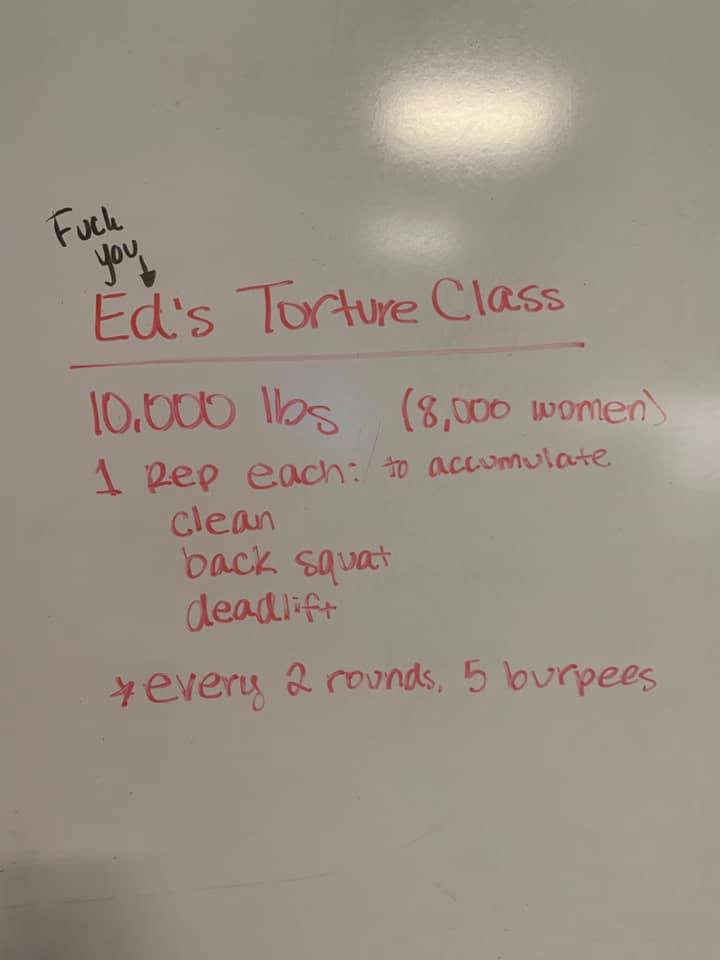 Fuck
you
Ed's Torture Class
10,000 lbs (8,000 women)
1 Rep each: to accumulate
clean
back squat
deadlift
*every 2 rounds, 5 burpees